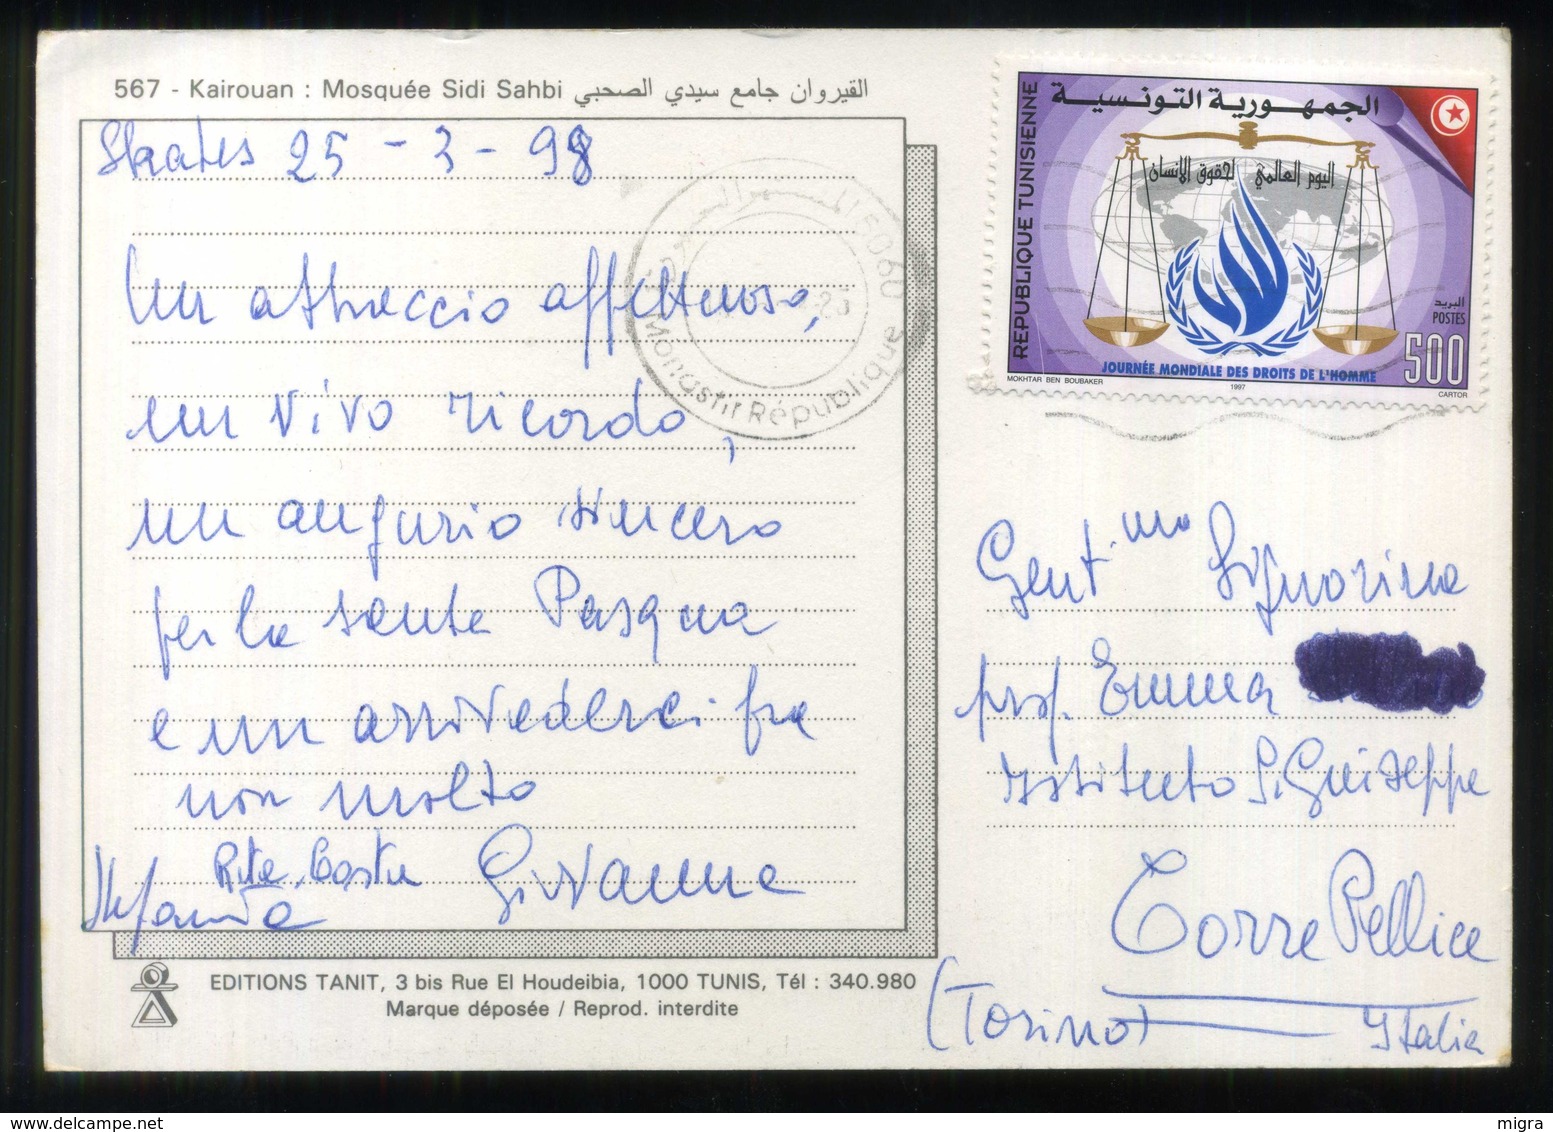 567 - Kairouan : Mosquée Sidi Sahbi القيروان جامع سيدي الصحبي
25 - 3 - 98
Un abbraccio affettuoso,
un vivo ricordo,
un augurio sincero
per la santa Pasqua
e un arrivederci fra
non molto
Rita Costa Giovanna
EDITIONS TANIT, 3 bis Rue El Houdeibia, 1000 TUNIS, Tél : 340.980
Marque déposée / Reprod. interdite
5060
Monastir République
REPUBLIQUE TUNISIENNE
الجمهورية التونسية
اليوم العالمي لحقوق الإنسان
البريد
POSTES
500
JOURNÉE MONDIALE DES DROITS DE L'HOMME
MOKHTAR BEN BOUBAKER 1997 CARTOR
Gent.ma Signorina
prof. Emma
Istituto S. Giuseppe
Torre Pellice
(Torino) Italia
migra